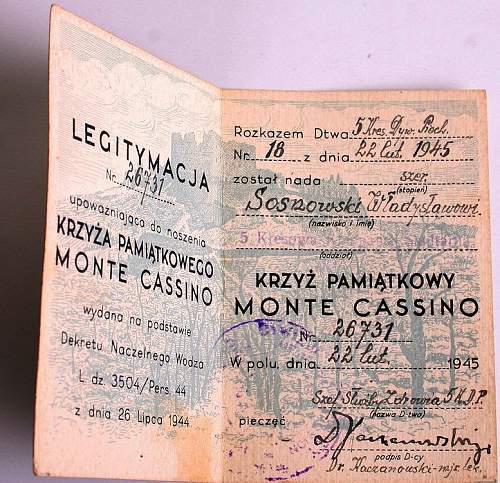 LEGITYMACJA
Nr. 26731
upoważniająca do noszenia
KRZYŻA PAMIĄTKOWEGO
MONTE CASSINO
wydana na podstawie
Dekretu Naczelnego Wodza
L dz. 3504/Pers 44
z dnia 26 lipca 1944
Rozkazem Dtwa 5 Kres. Dyw. Piech.
Nr. 18 z dnia 22 lut. 1945
został nada szer.
(stopień)
Soszowski Władysławowi
(nazwisko i imię)
5 Kresowa
(oddział)
KRZYŻ PAMIĄTKOWY
MONTE CASSINO
Nr. 26731
W polu, dnia 22 lut. 1945
Szef Służby Zdrowia 5 K.D.P.
(nazwa D-twa)
pieczęć
podpis D-cy
Dr. Kaczanowski-mjr. lek.